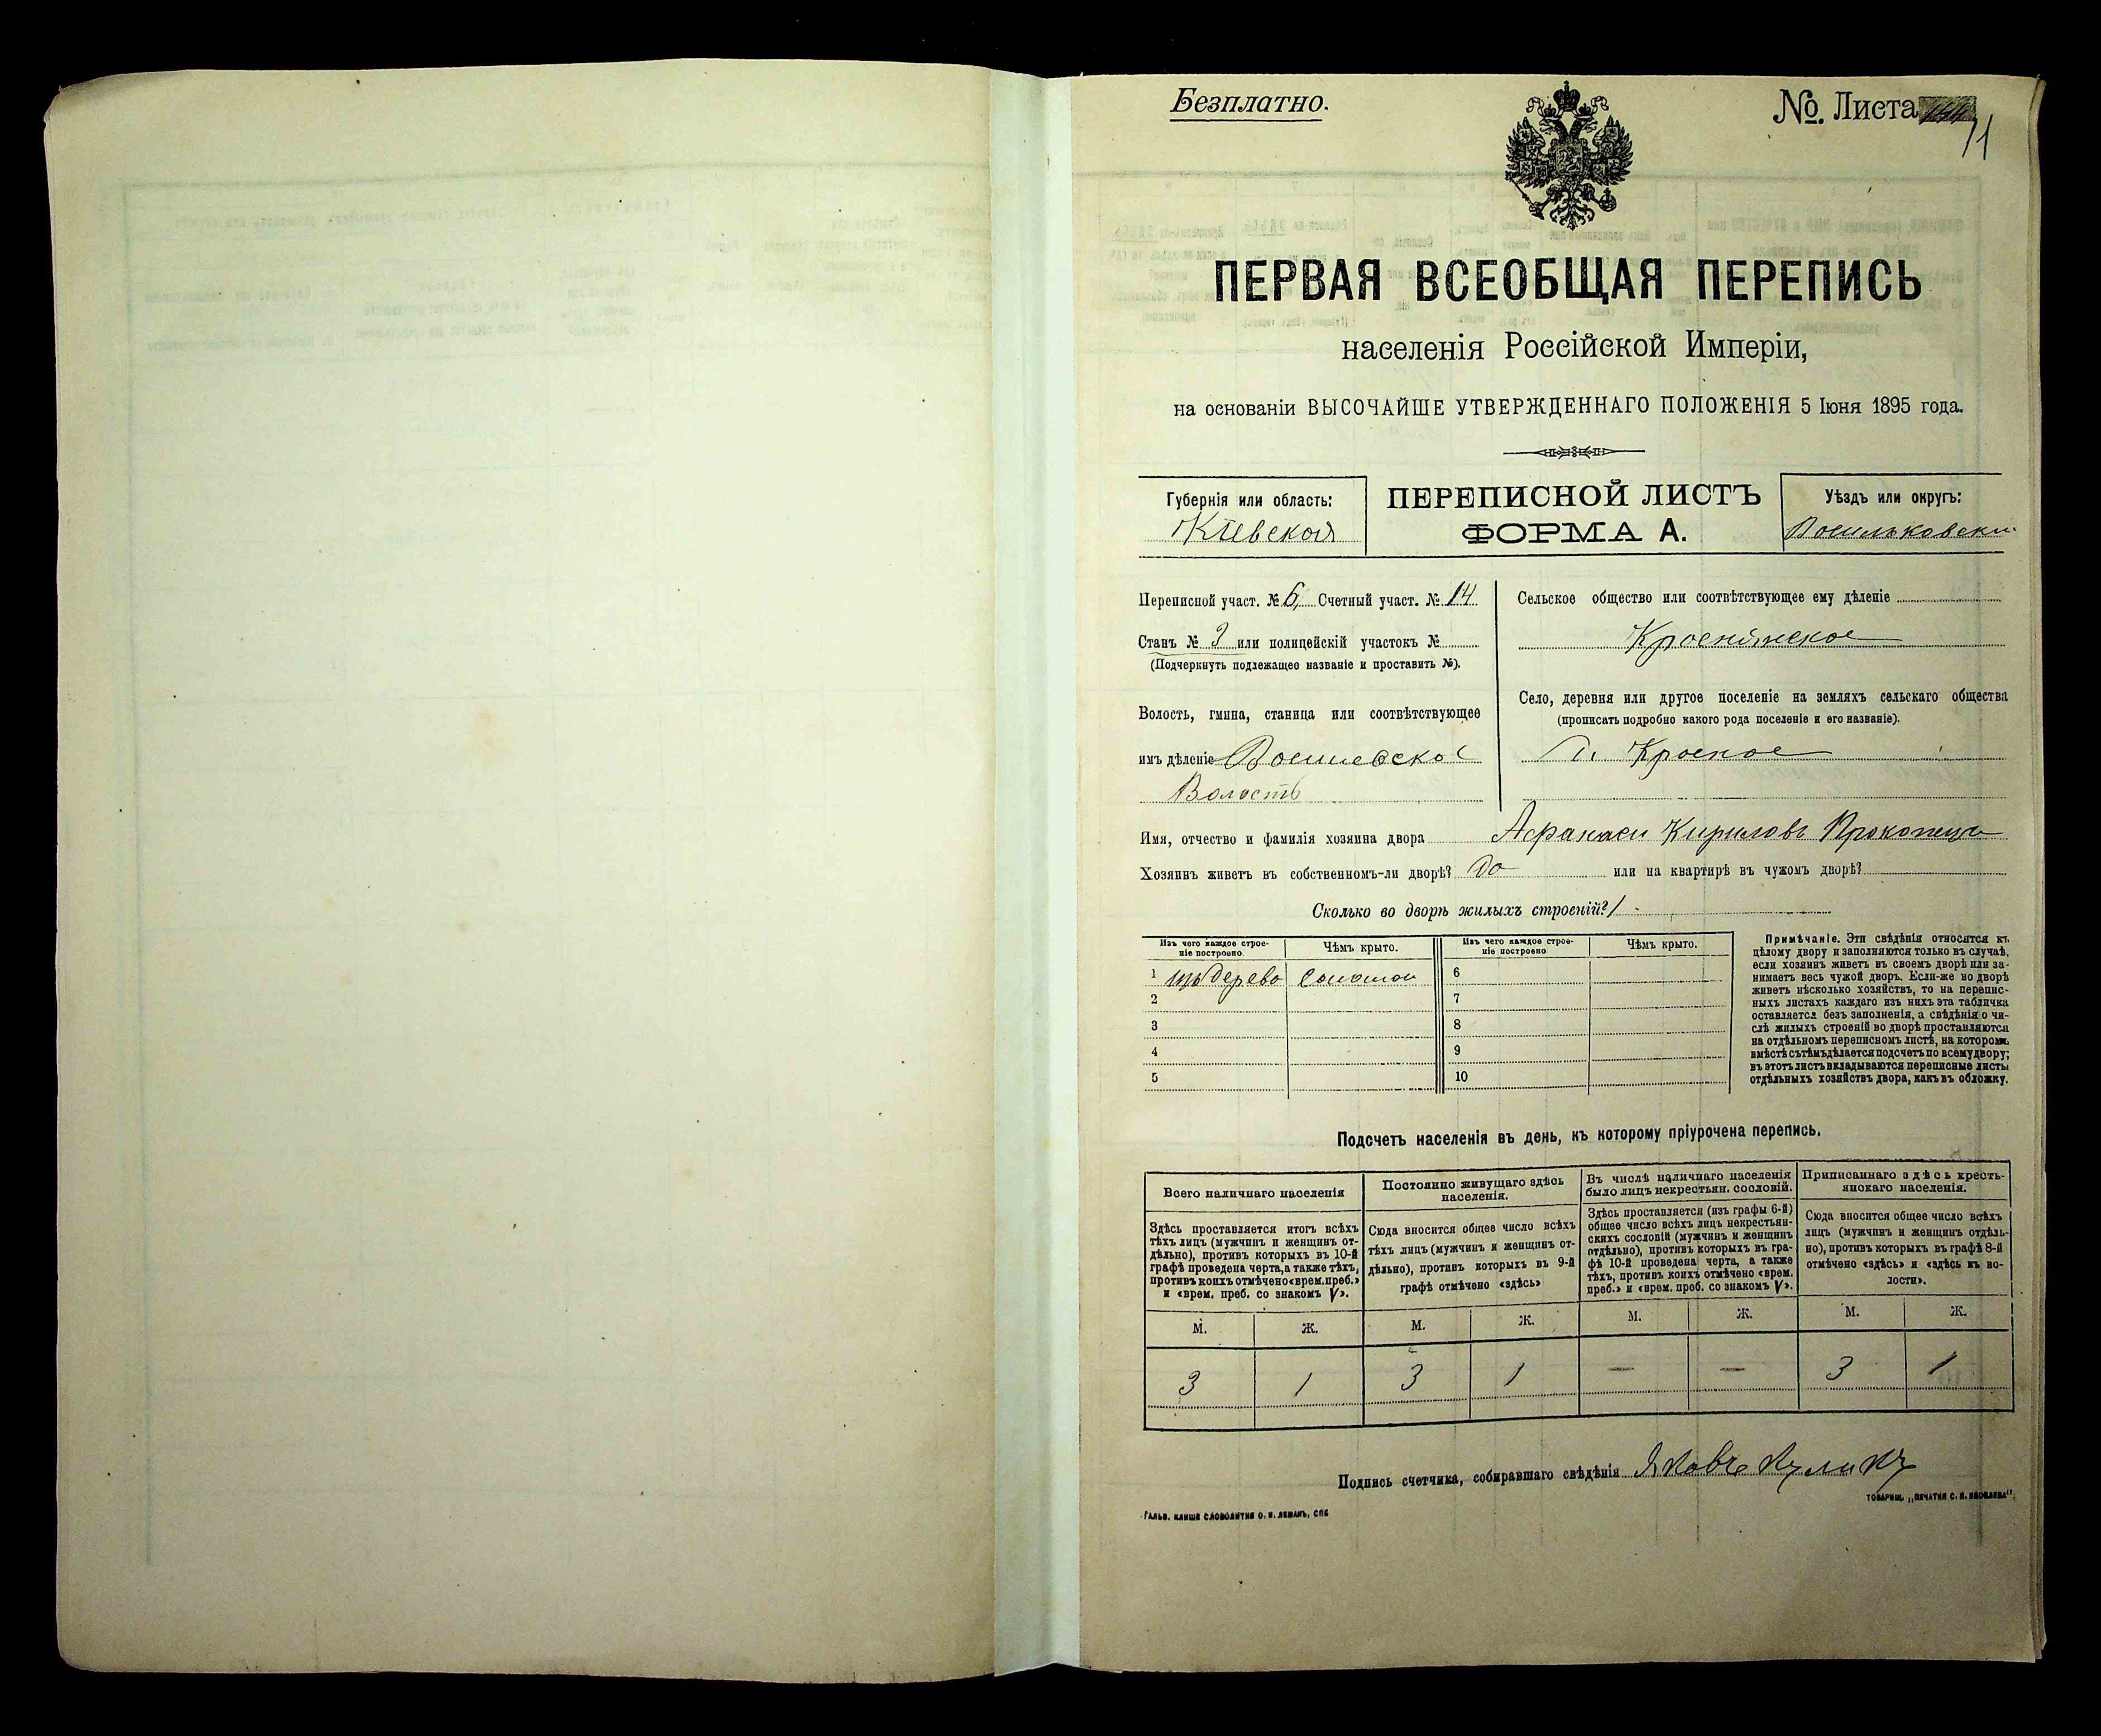 Безплатно.
№. Листа
71
ПЕРВАЯ ВСЕОБЩАЯ ПЕРЕПИСЬ
населенія Россійской Имперіи,
на основаніи ВЫСОЧАЙШЕ УТВЕРЖДЕННАГО ПОЛОЖЕНІЯ 5 Іюня 1895 года.
Губернія или область:
Кіевская
ПЕРЕПИСНОЙ ЛИСТЪ
ФОРМА А.
Уѣздъ или округъ:
Васильковскій
Переписной участ. № 6, Счетный участ. № 14
Станъ № 3 или полицейскій участокъ №
(Подчеркнуть подлежащее названіе и проставить №).
Волость, гмина, станица или соотвѣтствующее
имъ дѣленіе
Волость
Сельское общество или соотвѣтствующее ему дѣленіе
Село, деревня или другое поселеніе на земляхъ сельскаго общества
(прописать подробно какого рода поселеніе и его названіе).
Красное
Имя, отчество и фамилія хозяина двора Афанасій Кириловъ Прокопецъ
Хозяинъ живетъ въ собственномъ-ли дворѣ? да или на квартирѣ въ чужомъ дворѣ?
Сколько во дворѣ жилыхъ строеній? 1
Изъ чего каждое строе-
ніе построено.
Чѣмъ крыто.
Изъ чего каждое строе-
ніе построено
Чѣмъ крыто.
1 изъ дерева соломой 6
2 7
3 8
4 9
5 10
Примѣчаніе. Эти свѣдѣнія относятся къ
цѣлому двору и заполняются только въ случаѣ,
если хозяинъ живетъ въ своемъ дворѣ или за-
нимаетъ весь чужой дворъ. Если-же во дворѣ
живетъ нѣсколько хозяйствъ, то на перепис-
ныхъ листахъ каждаго изъ нихъ эта табличка
оставляется безъ заполненія, а свѣдѣнія о чи-
слѣ жилыхъ строеній во дворѣ проставляются
на отдѣльномъ переписномъ листѣ, на которомъ
вмѣстѣ съ тѣмъ дѣлается подсчетъ по всему двору;
въ этотъ листъ вкладываются переписные листы
отдѣльныхъ хозяйствъ двора, какъ въ обложку.
Подсчетъ населенія въ день, къ которому пріурочена перепись.
Всего наличнаго населенія
Здѣсь проставляется итогъ всѣхъ
тѣхъ лицъ (мужчинъ и женщинъ от-
дѣльно), противъ которыхъ въ 10-й
графѣ проведена черта, а также тѣхъ,
противъ коихъ отмѣчено «врем. преб.»
и «врем. преб. со знакомъ V».
Постоянно живущаго здѣсь
населенія.
Сюда вносится общее число всѣхъ
тѣхъ лицъ (мужчинъ и женщинъ от-
дѣльно), противъ которыхъ въ 9-й
графѣ отмѣчено «здѣсь»
Въ числѣ наличнаго населенія
было лицъ некрестьян. сословій.
Здѣсь проставляется (изъ графы 6-й)
общее число всѣхъ лицъ некрестьян-
скихъ сословій (мужчинъ и женщинъ
отдѣльно), противъ которыхъ въ гра-
фѣ 10-й проведена черта, а также
тѣхъ, противъ коихъ отмѣчено «врем.
преб.» и «врем. преб. со знакомъ V».
Приписаннаго здѣсь кресть-
янскаго населенія.
Сюда вносится общее число всѣхъ
лицъ (мужчинъ и женщинъ отдѣль-
но), противъ которыхъ въ графѣ 8-й
отмѣчено «здѣсь» и «здѣсь къ во-
лости».
М. Ж. М. Ж. М. Ж. М. Ж.
3 1 3 1 — — 3 1
Подпись счетчика, собиравшаго свѣдѣнія Яковъ Куликъ
ТОВАРИЩ. „ПЕЧАТНЯ С. П. ЯКОВЛЕВА".
ГАЛЬВ. КЛИШЕ СЛОВОЛИТНИ О. И. ЛЕМАНЪ, СПБ